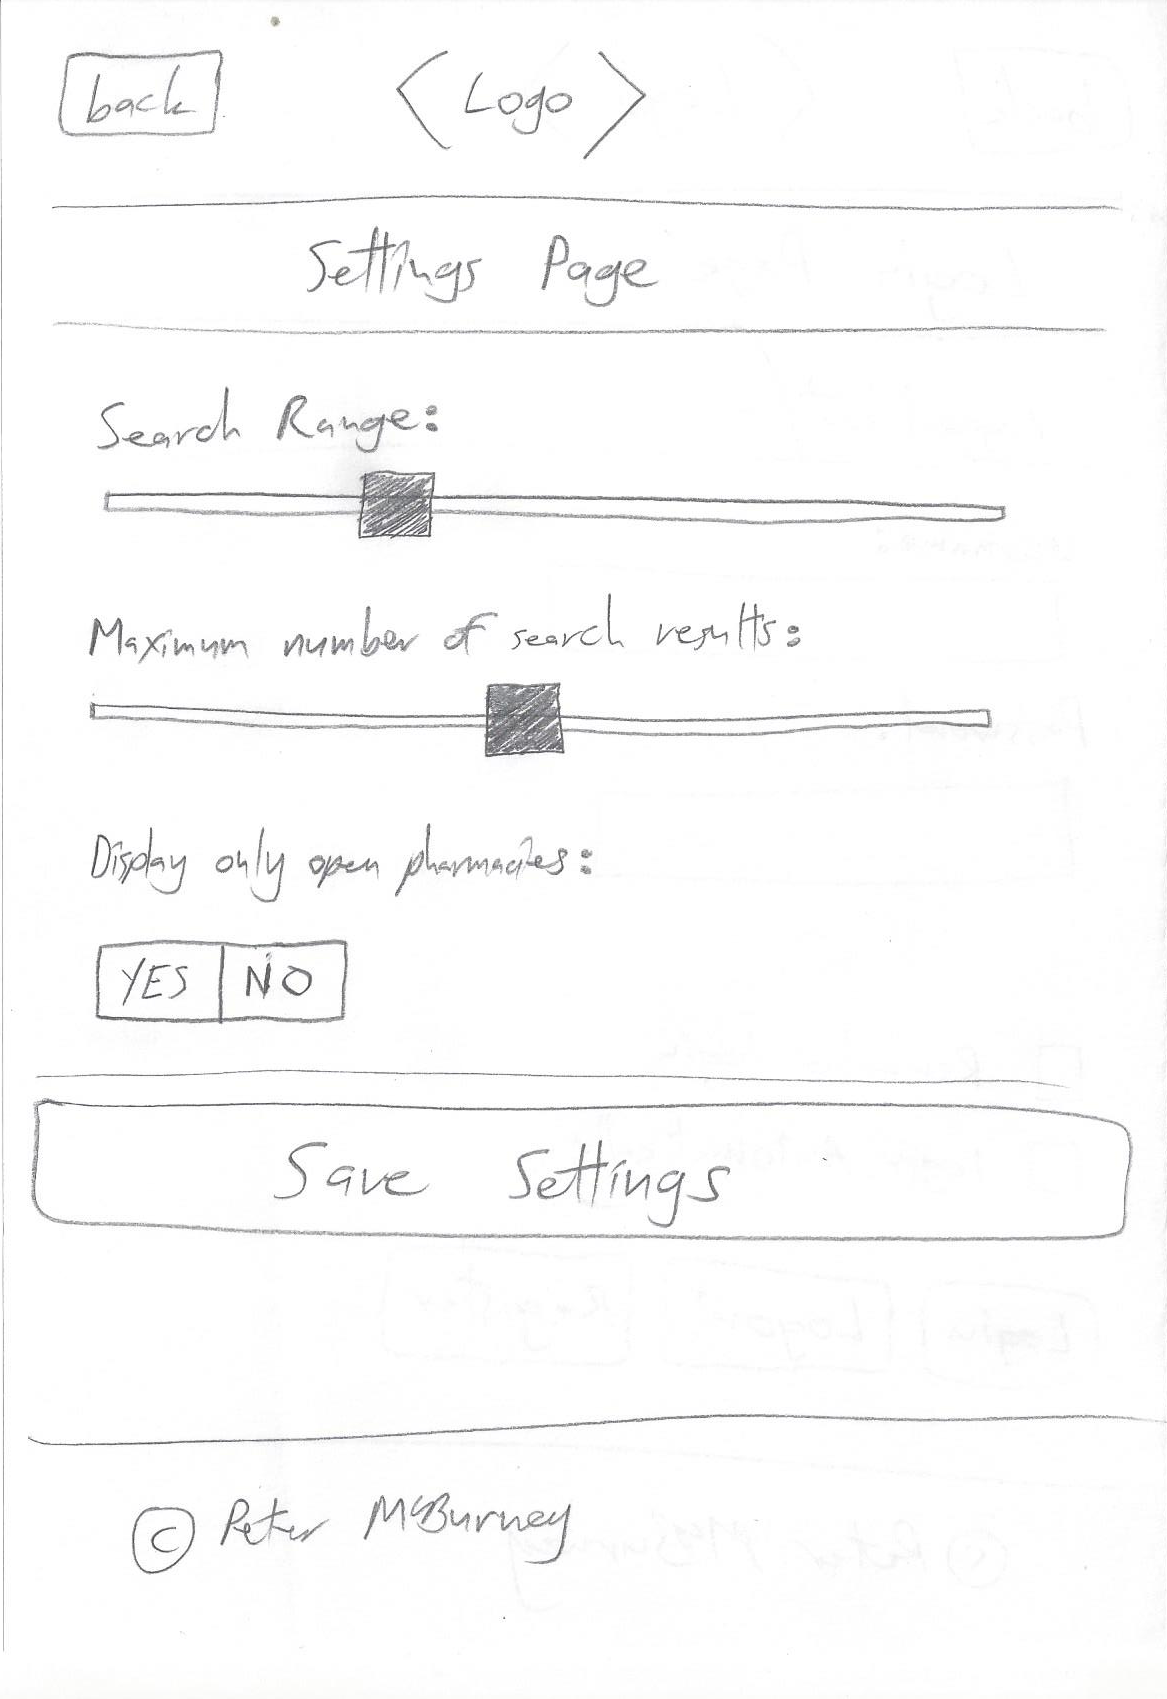 back
Logo
Settings Page
Search Range:
Maximum number of search results:
Display only open pharmacies:
YES NO
Save Settings
© Peter McBurney